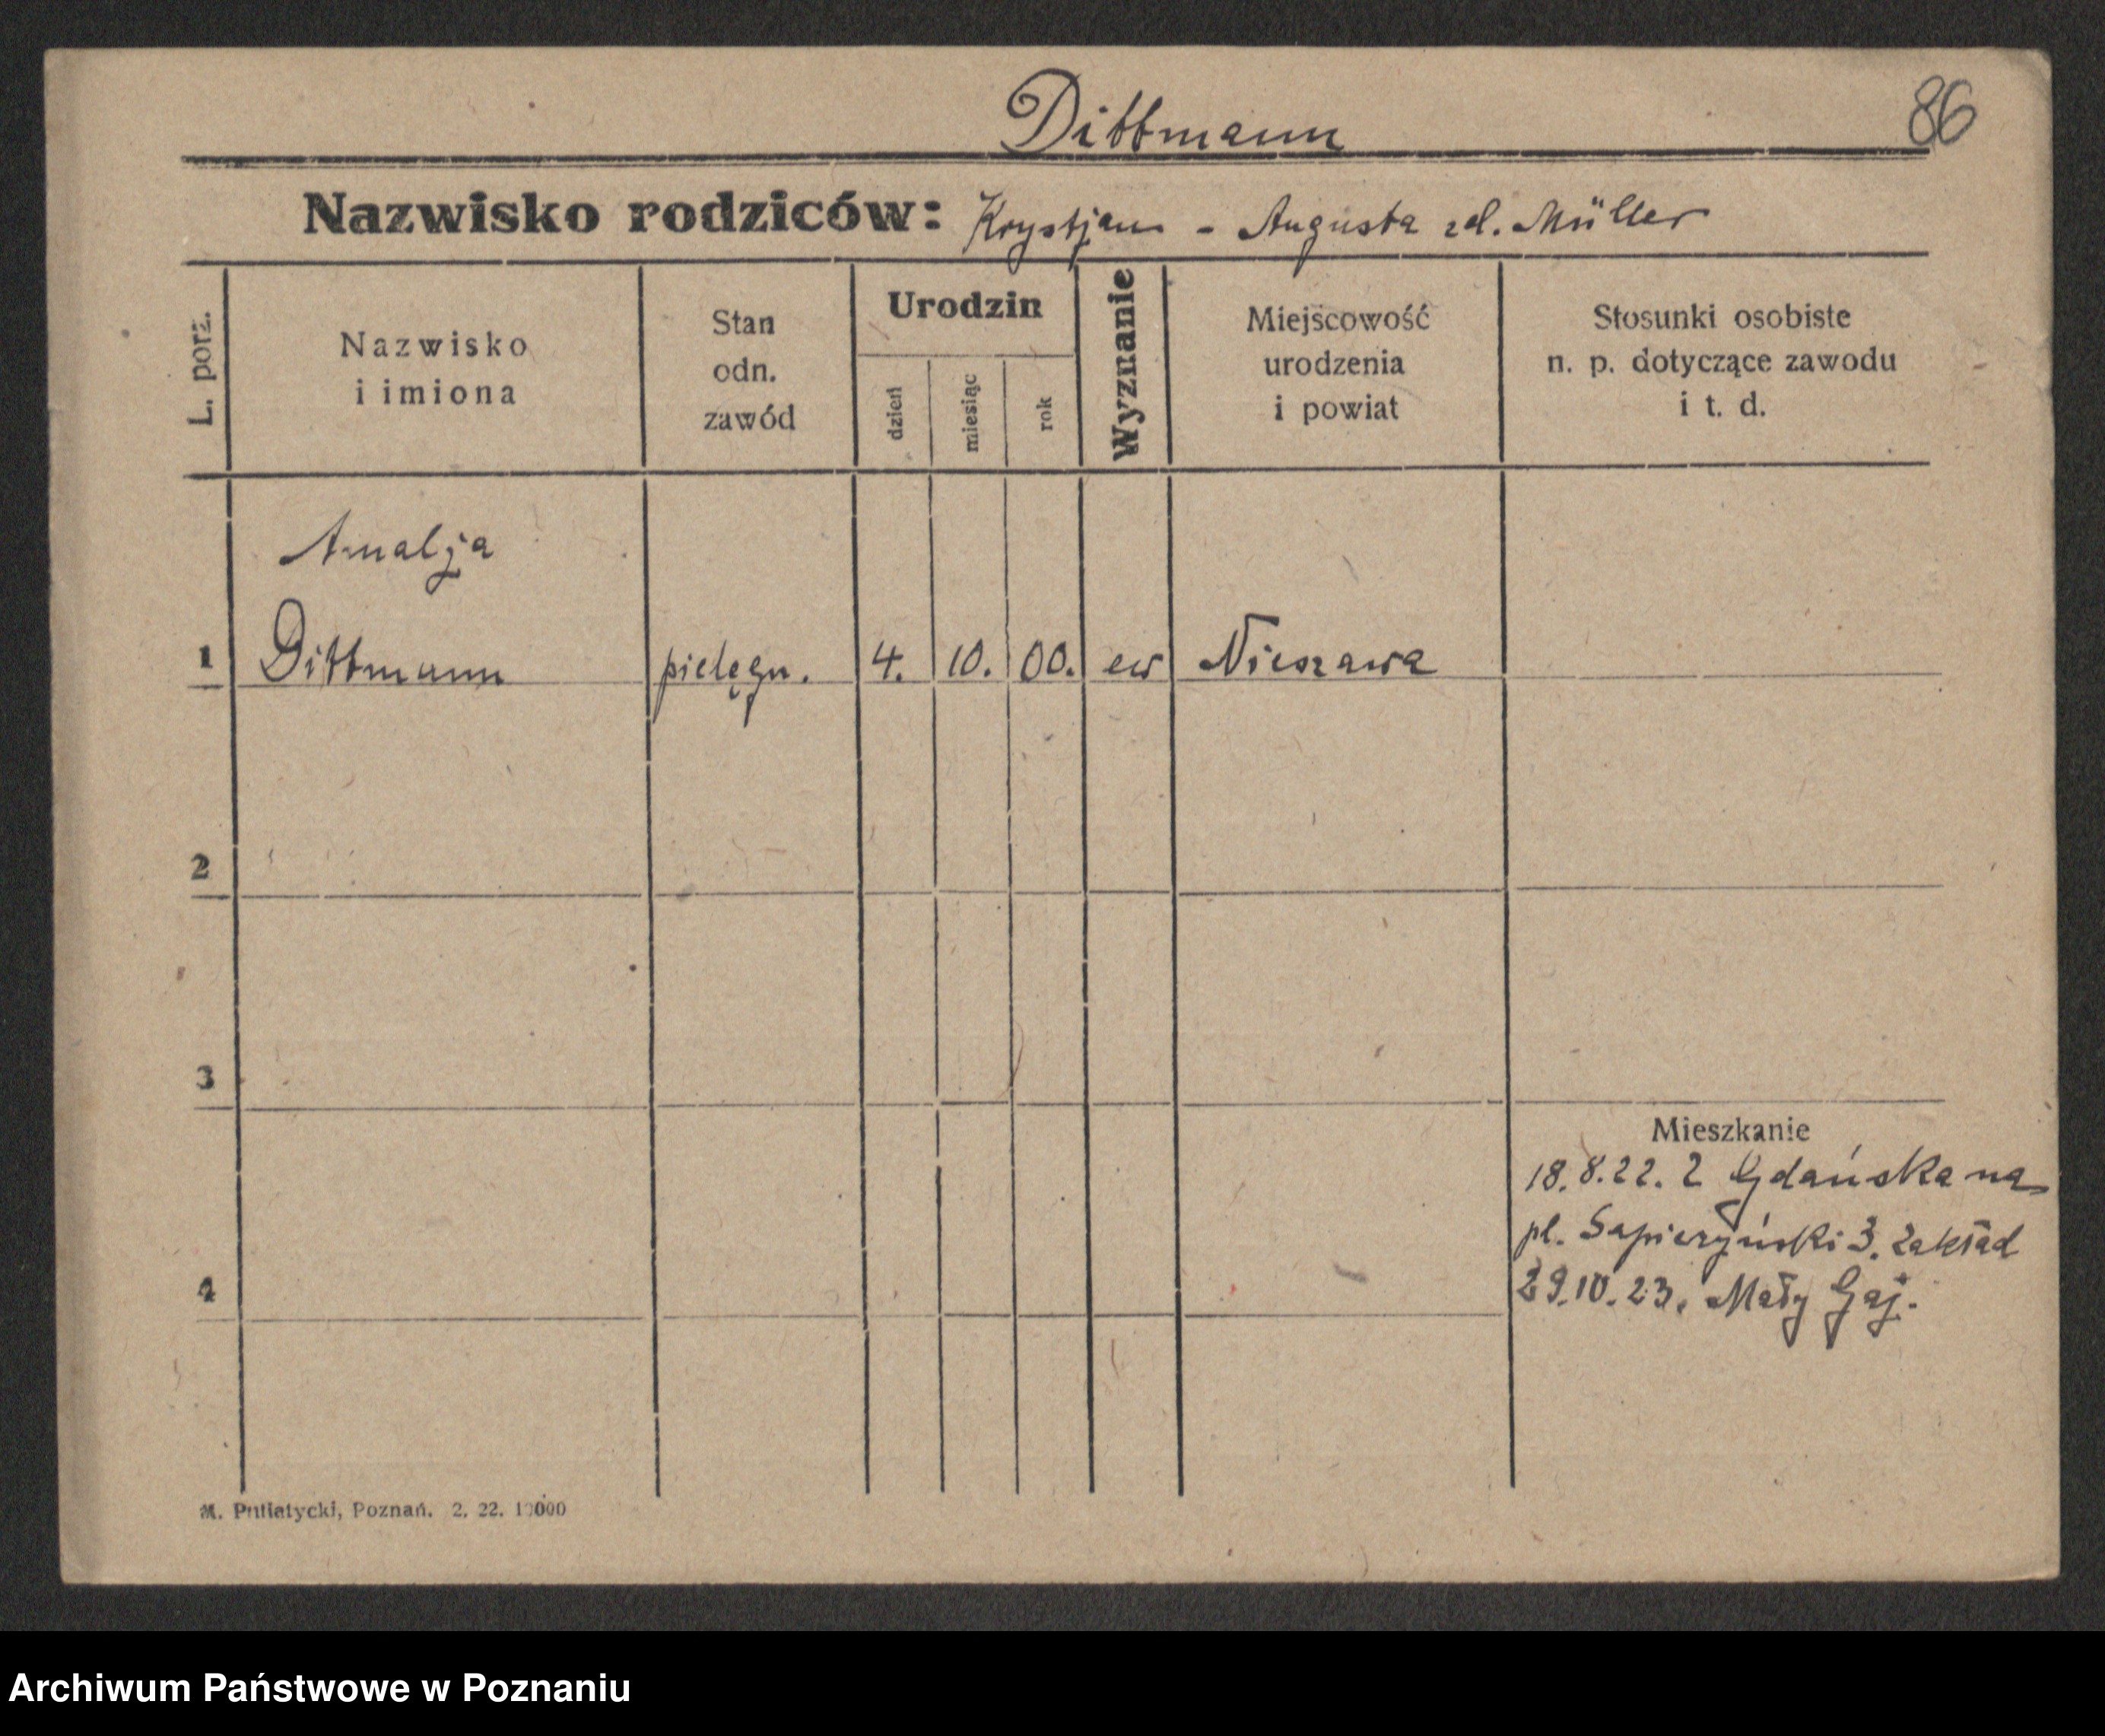 Dittmann
86
Nazwisko rodziców: Krystjan - Augusta zd. Müller
L. porz.
Nazwisko
i imiona
Stan
odn.
zawód
Urodzin
dzień
miesiąc
rok
Wyznanie
Miejscowość
urodzenia
i powiat
Stosunki osobiste
n. p. dotyczące zawodu
i t. d.
Amalja
1 Dittmann pielęgn. 4. 10. 00. ew Nieszawa
2
3
Mieszkanie
18.8.22. z Gdańska na
pl. Sapieżyński 3. Zakład
29.10.23. Mały Gaj.
4
M. Putiatycki, Poznań. 2. 22. 10000
Archiwum Państwowe w Poznaniu